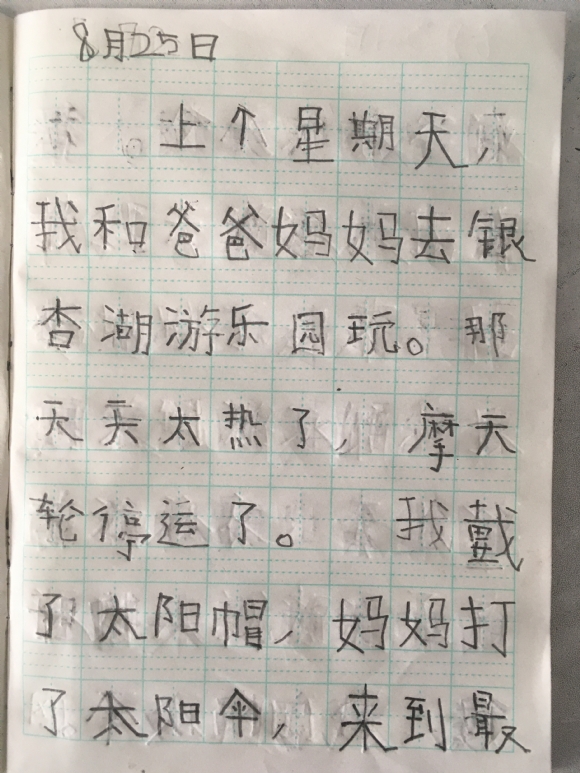 8月25日
上个星期天，
我和爸爸妈妈去银
杏湖游乐园玩。那
天天太热了，摩天
轮停运了。我戴
了太阳帽，妈妈打
了太阳伞，来到最